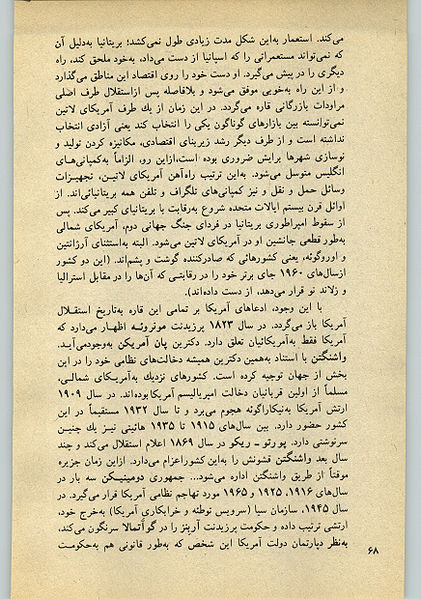 می‌کند. استعمار به‌این شکل مدت زیادی طول نمی‌کشد؛ بریتانیا به‌دلیل آن
که نمی‌تواند مستعمراتی را که اسپانیا از دست می‌داد، به‌خود ملحق کند، راه
دیگری را در پیش می‌گیرد. او دست خود را روی اقتصاد این مناطق می‌گذارد
و از این راه به‌خوبی موفق می‌شود و بلافاصله پس ازاستقلال طرف اصلی
مراودات بازرگانی قاره می‌گردد. در این زمان از یك طرف آمریکای لاتین
نمی‌توانسته بین بازارهای گوناگون یکی را انتخاب کند یعنی آزادی انتخاب
نداشته است و از طرف دیگر رشد زیربنای اقتصادی، مکانیزه کردن تولید و
نوسازی شهرها برایش ضروری بوده است،ازاین رو، الزاماً به‌کمپانی‌های
انگلیس متوسل می‌شود. به‌این ترتیب راه‌آهن آمریکای لاتین، تجهیزات
وسائل حمل و نقل و نیز کمپانی‌های تلگراف و تلفن همه بریتانیائی‌اند. از
اوائل قرن بیستم ایالات متحده شروع به‌رقابت با بریتانیای کبیر می‌کند. پس
از سقوط امپراطوری بریتانیا در فردای جنگ جهانی دوم، آمریکای شمالی
به‌طور قطعی جانشین او در آمریکای لاتین می‌شود. البته به‌استثنای آرژانتین
و اوروگوئه، یعنی کشورهائی که صادرکننده گوشت و پشم‌اند. (این دو کشور
ازسال‌های ۱۹۶۰ جای برتر خود را در رقابتی که آن‌ها را در مقابل استرالیا
و زلاند نو قرار می‌دهد، از دست داده‌اند).
با این وجود، ادعاهای آمریکا بر تمامی این قاره به‌تاریخ استقلال
آمریکا باز می‌گردد. در سال ۱۸۲۳ پرزیدنت مونروئه اظهار می‌دارد که
آمریکا فقط به‌آمریکائیان تعلق دارد. دکترین پان آمریکن به‌وجودمی‌آید.
واشنگتن با استناد به‌همین دکترین همیشه دخالت‌های نظامی خود را در این
بخش از جهان توجیه کرده است. کشورهای نزدیك به‌آمریکای شمالی،
مسلماً از اولین قربانیان دخالت امپریالیسم آمریکابوده‌اند. در سال ۱۹۰۹
ارتش آمریکا به‌نیکاراگوئه هجوم می‌برد و تا سال ۱۹۳۲ مستقیماً در این
کشور حضور دارد. بین سال‌های ۱۹۱۵ تا ۱۹۳۵ هائیتی نیز یك چنین
سرنوشتی دارد. پورتو ـ ریکو در سال ۱۸۶۹ اعلام استقلال می‌کند و چند
سال بعد واشنگتن قشونش را به‌این کشوراعزام می‌دارد. ازاین زمان جزیره
موقتاً از طریق واشنگتن اداره می‌شود... جمهوری دومینیکن سه بار در
سال‌های ۱۹۱۶، ۱۹۲۵ و ۱۹۶۵ مورد تهاجم نظامی آمریکا قرار می‌گیرد. در
سال ۱۹۴۵، سازمان سیا (سرویس توطئه و خرابکاری آمریکا) به‌خرج خود،
ارتشی ترتیب داده و حکومت پرزیدنت آربنز را در گواتمالا سرنگون می‌کند،
به‌نظر دپارتمان دولت آمریکا این شخص که به‌طور قانونی هم به‌حکومت
۶۸